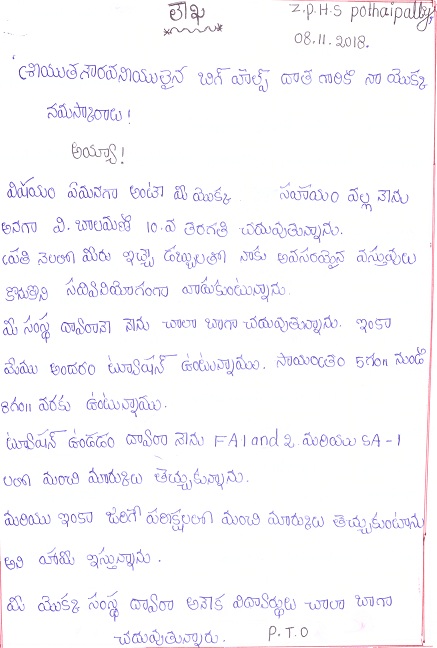 లేఖ
Z.P.H.S pothaipally,
08.11.2018.
శ్రీయుత గౌరవనీయులైన బిగ్ హెల్ప్ దాత గారికి నా యొక్క
నమస్కారాలు!
అయ్యా!
విషయం ఏమనగా అంటా మీ యొక్క సహాయం వల్ల నేను
అనగా వి. బాలమణి 10.వ తరగతి చదువుతున్నాను.
ప్రతి నెలలో మీరు ఇచ్చే డబ్బులతో నాకు అవసరమైన వస్తువులు
కొనుక్కొని సద్వినియోగంగా వాడుకుంటున్నాను.
మీ సంస్థ ద్వారానే నేను చాలా బాగా చదువుతున్నాను. ఇంకా
మేము అందరం ట్యూషన్ ఉంటున్నాము. సాయంత్రం 5గం॥ నుండి
8గం॥ వరకు ఉంటున్నాము.
ట్యూషన్ ఉండడం ద్వారా నేను FA1 and 2 మరియు SA-1
లలో మంచి మార్కులు తెచ్చుకున్నాను.
మరియు ఇంకా జరిగే పరీక్షలలో మంచి మార్కులు తెచ్చుకుంటాను
అని హామీ ఇస్తున్నాను.
మీ యొక్క సంస్థ ద్వారా అనేక విద్యార్థులు చాలా బాగా
చదువుతున్నారు.
P.T.O